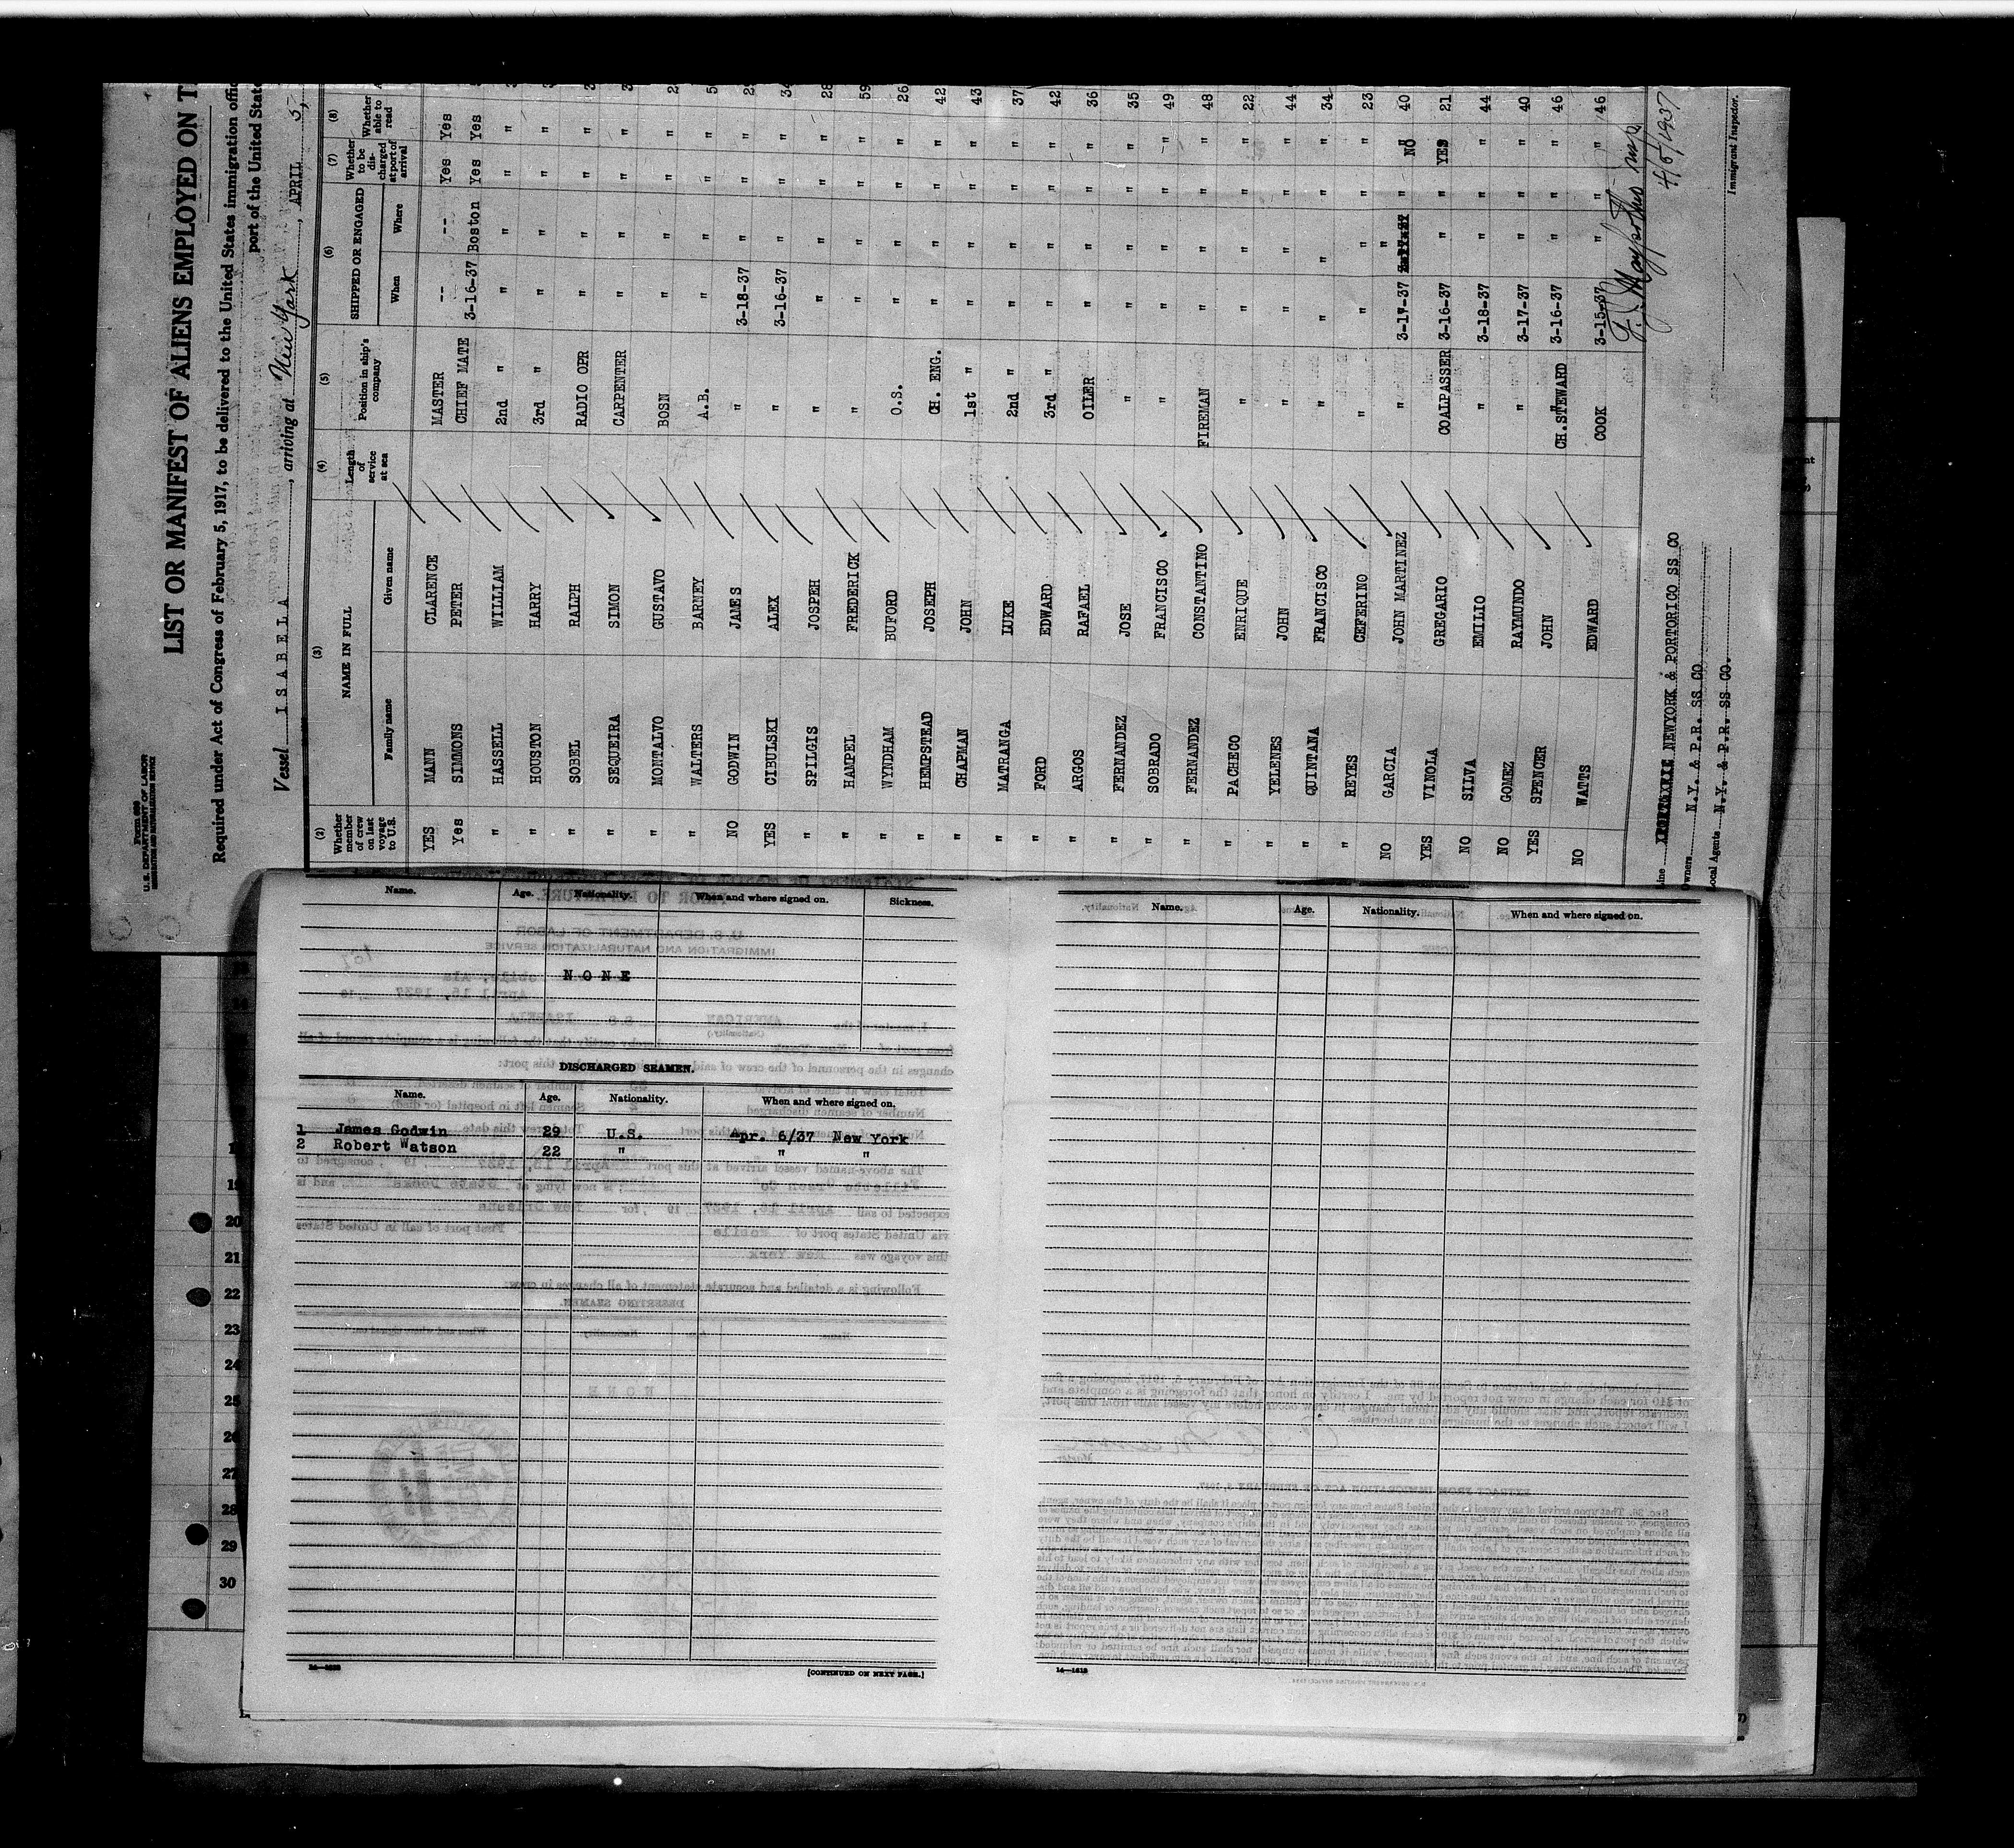 Form 689
U.S. DEPARTMENT OF LABOR
IMMIGRATION AND NATURALIZATION SERVICE
LIST OR MANIFEST OF ALIENS EMPLOYED ON T
Required under Act of Congress of February 5, 1917, to be delivered to the United States immigration offic
port of the United State
Vessel ISABELA, arriving at New York, APRIL 5,
(2) (3) (4) (5) (6) (7) (8)
Whether member of crew on last voyage to U.S. NAME IN FULL Length of service at sea Position in ship's company SHIPPED OR ENGAGED Whether to be discharged at port of arrival Whether able to read
Family name Given name When Where
YES MANN CLARENCE MASTER -- -- Yes Yes
Yes SIMMONS PETER CHIEF MATE 3-16-37 Boston Yes Yes
" HASSELL WILLIAM 2nd " " " " "
" HOUSTON HARRY 3rd " " " " "
" SOBEL RALPH RADIO OPR " " " "
" SEQUEIRA SIMON CARPENTER " " " "
" MONTALVO GUSTAVO BOSN " " " "
" WALTERS BARNEY A.B. " " " "
NO GODWIN JAMES " 3-18-37 " " "
YES CIBULSKI ALEX " 3-16-37 " " " 34
" SPILGIS JOSPEH " " " " " 28
" HAMPEL FREDERICK " " " " " 59
" WYNDHAM BUFORD O.S. " " " " 26
" HEMPSTEAD JOSEPH CH. ENG. " " " " 42
" CHAPMAN JOHN 1st " " " " " 43
" MATRANGA LUKE 2nd " " " " " 37
" FORD EDWARD 3rd " " " " " 42
" ARGOS RAFAEL OILER " " " " 36
" FERNANDEZ JOSE " " " " " 35
" SOBRADO FRANCISCO " " " " " 49
" FERNANDEZ CONSTANTINO FIREMAN " " " " 48
" PACHECO ENRIQUE " " " " " 22
" YELENES JOHN " " " " " 44
" QUINTANA FRANCISCO " " " " " 34
" REYES CEFERINO " " " " " 23
NO GARCIA JOHN MARTINEZ " 3-17-37 " " NO 40
YES VINOLA GREGARIO COALPASSER 3-16-37 " " YES 21
NO SILVA EMILIO " 3-18-37 " " " 44
NO GOMEZ RAYMUNDO " 3-17-37 " " " 40
YES SPENCER JOHN CH.STEWARD 3-16-37 " " " 46
NO WATTS EDWARD COOK 3-15-37 " " " 46
4/5/1937
Line NEWYORK & PORTORICO SS CO
Owners N.Y. & P.R. SS CO
Local Agents N.Y. & P.R. SS CO.
Immigrant Inspector.
Name. Age. Nationality. When and where signed on. Sickness.
NONE
DISCHARGED SEAMEN.
Name. Age. Nationality. When and where signed on.
1 James Godwin 29 U.S. Apr. 6/37 New York
2 Robert Watson 22 " " "
[CONTINUED ON NEXT PAGE.]
Name. Age. Nationality. When and where signed on.
14—1618
19
20
21
22
23
24
25
26
27
28
29
30